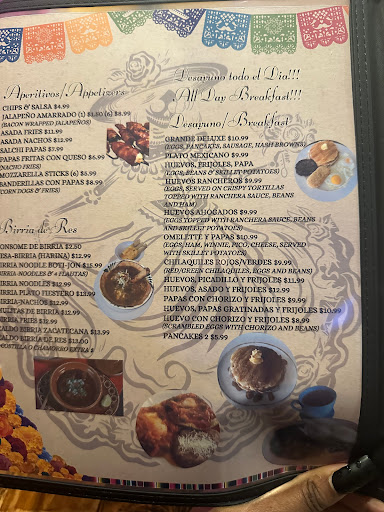 Aperitivos/Appetizers
CHIPS & SALSA $4.99
JALAPEÑO AMARRADO (1) $1.50 (6) $8.99
(BACON WRAPPED JALAPEÑOS)
ASADA FRIES $11.99
ASADA NACHOS $12.99
SALCHI PAPAS $8.99
PAPAS FRITAS CON QUESO $6.99
(NACHO FRIES)
MOZZARELLA STICKS (6) $5.99
BANDERILLAS CON PAPAS $8.99
(CORN DOGS & FRIES)
Birria de Res
CONSOME DE BIRRIA $2.50
QUESA-BIRRIA (HARINA) $12.99
BIRRIA NOODLE BOWL $15.99
BIRRIA NOODLES $12.99
BIRRIA PLATO FIESTERO $13.99
BIRRIA-NACHOS $12.99
BIRRIA FRIES $12.99
CALDO BIRRIA ZACATECANA $13.99
CALDO DE BIRRIA DE RES $13.00
Desayuno todo el Dia!!!
All Day Breakfast!!!
Desayuno/ Breakfast
GRANDE DELUXE $10.99
(EGGS, PANCAKES, SAUSAGE, HASH BROWNS)
PLATO MEXICANO $9.99
HUEVOS, FRIJOLES, PAPA
(EGGS, BEANS & SKILLET POTATOES)
HUEVOS RANCHEROS $9.99
(EGGS, SERVED ON CRISPY TORTILLAS
TOPPED WITH RANCHERA SAUCE, BEANS
AND HAM)
HUEVOS AHOGADOS $9.99
(EGGS TOPPED WITH RANCHERA SAUCE, BEANS
AND SKILLET POTATOES)
OMELETTE Y PAPAS $10.99
(EGGS, HAM, WINNIE, PICO, CHEESE, SERVED
WITH SKILLET POTATOES)
CHILAQUILES ROJOS/VERDES $9.99
(RED/GREEN CHILAQUILES, EGGS AND BEANS)
HUEVOS, PICADILLO Y FRIJOLES $11.99
HUEVOS, ASADO Y FRIJOLES $12.99
PAPAS CON CHORIZO Y FRIJOLES $9.99
HUEVOS, PAPAS GRATINADAS Y FRIJOLES $10.99
HUEVO CON CHORIZO Y FRIJOLES $8.99
(SCRAMBLED EGGS WITH CHORIZO AND BEANS)
PANCAKES 2 $5.99